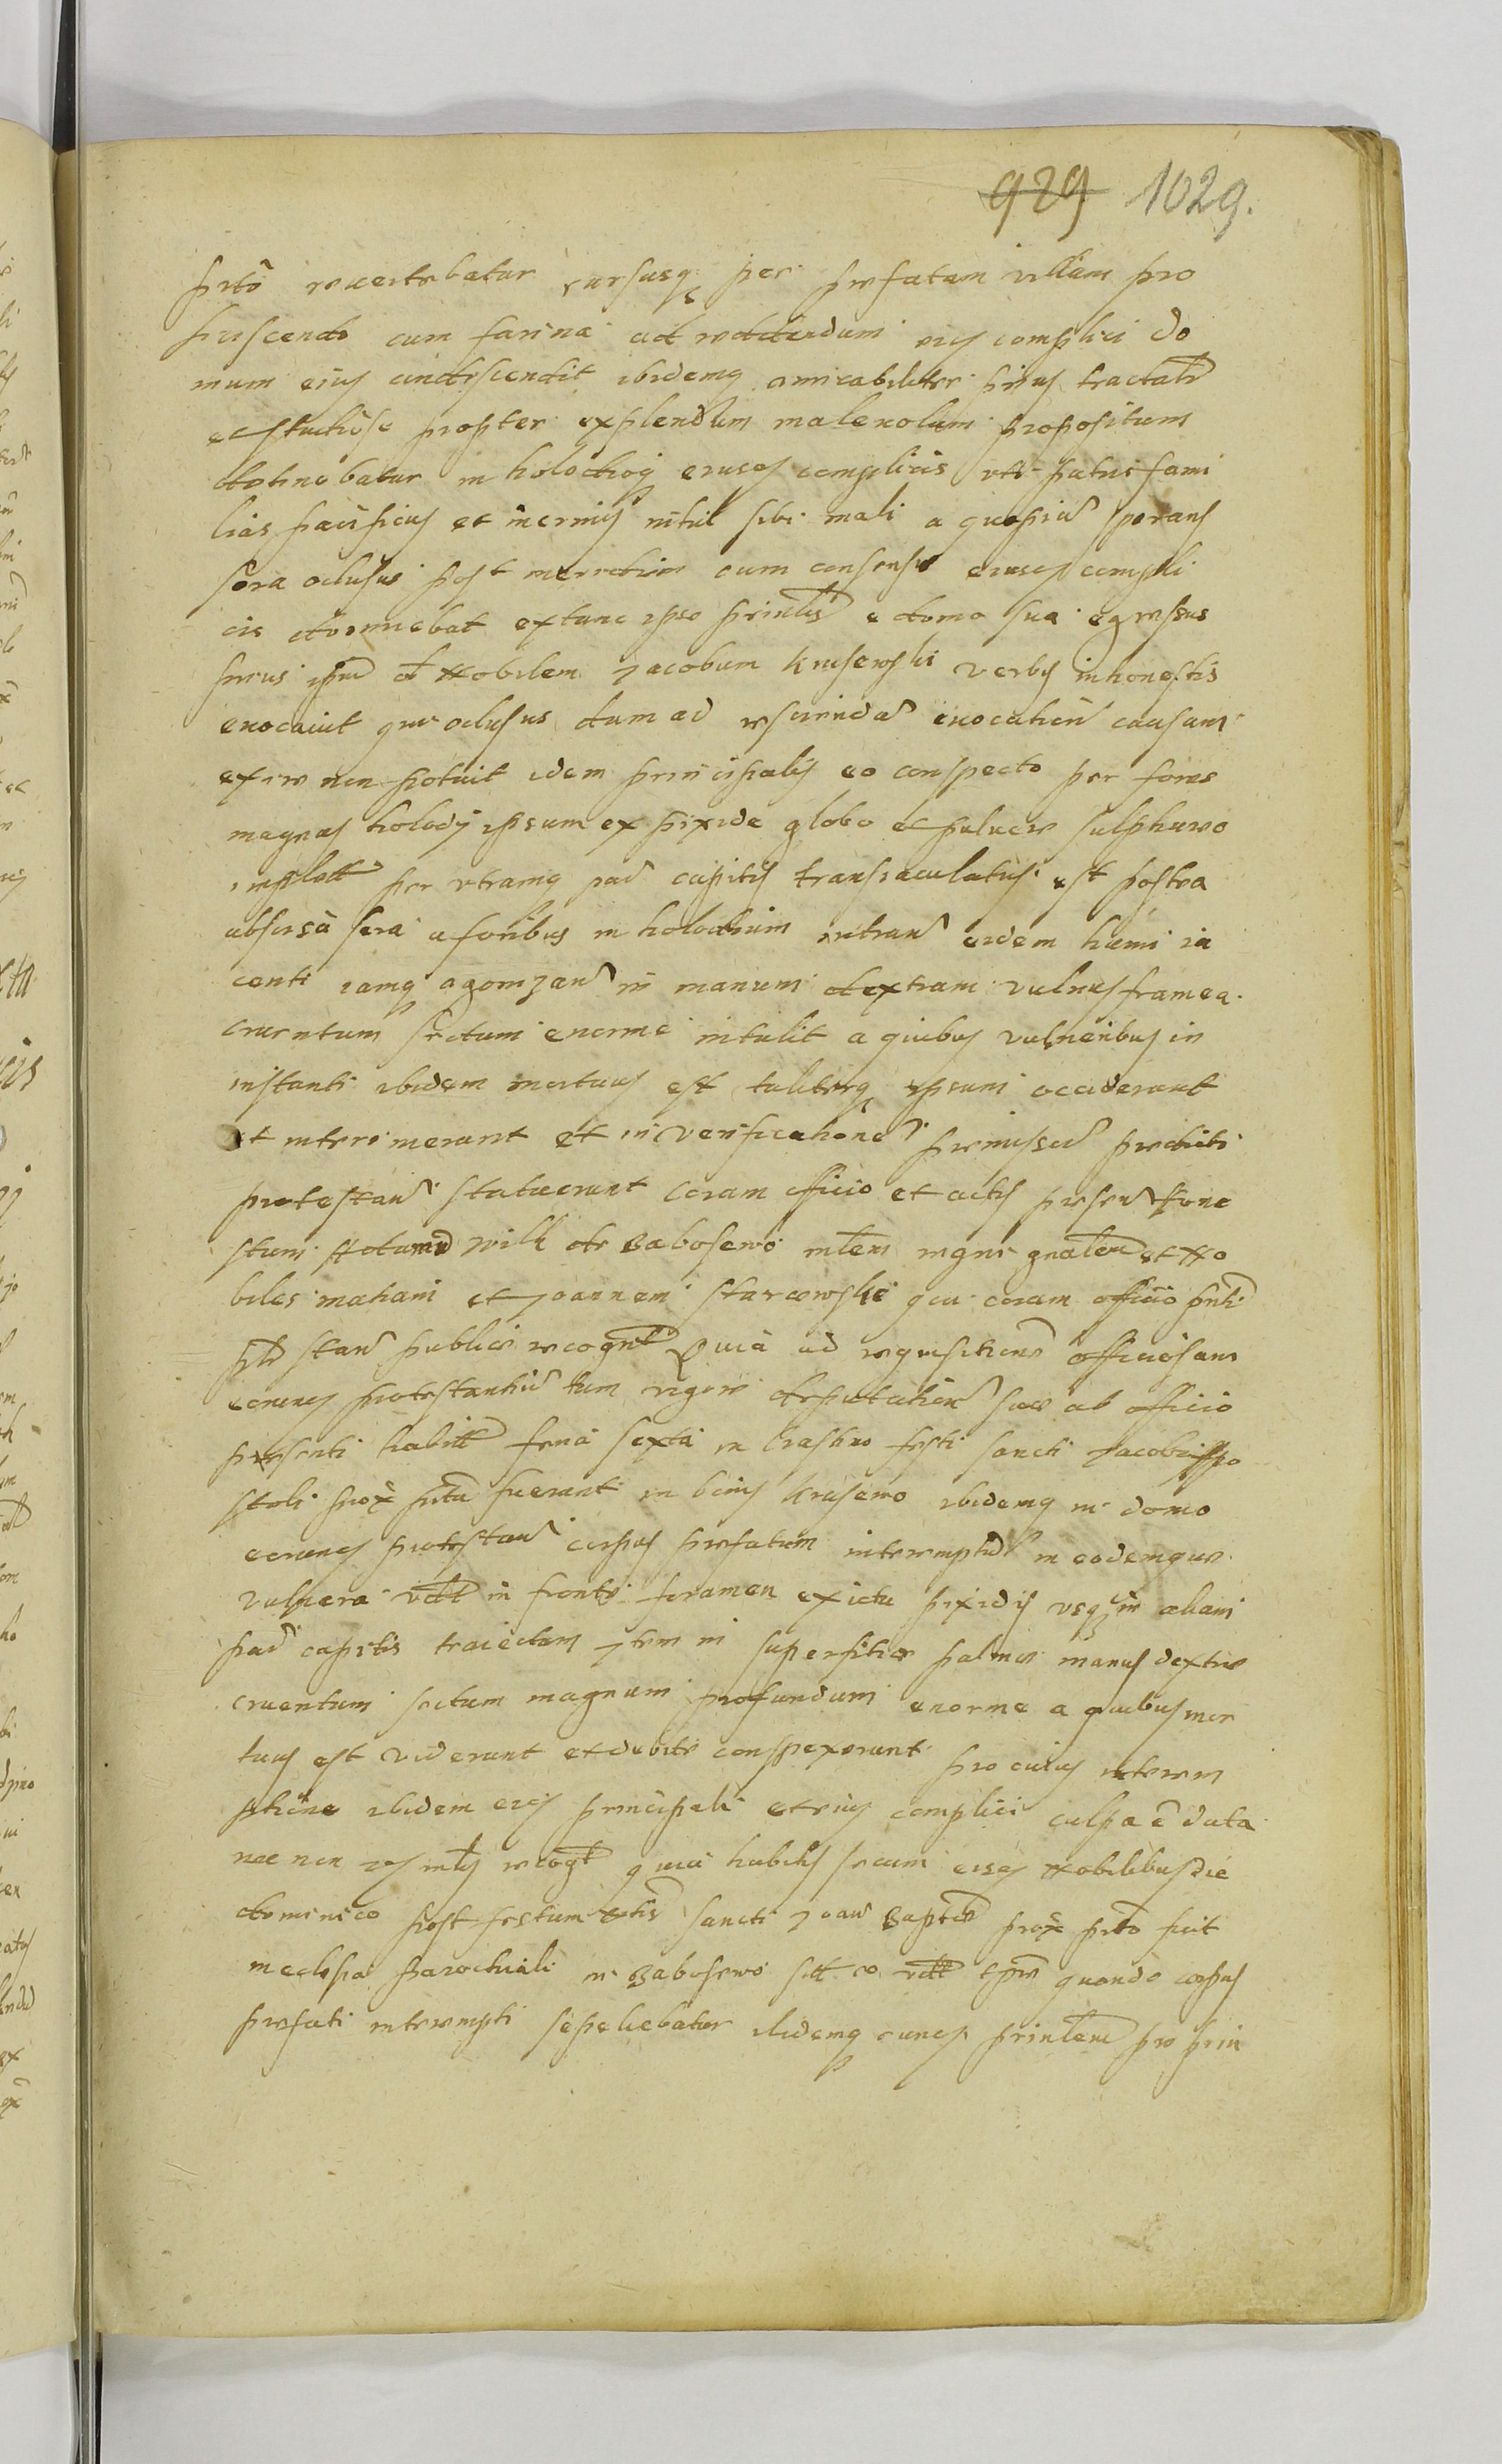 929 1029.
prto revertebatur rursusq per prefatam villam pro
ficiscendo cum farina ad reddendum eidem complici do
mum eius condescendit ibidemq amicabiliter prius tractatus
et studiose propter explendum malevolum propositum
detinebatur in holodioq eiusdem complicis uti paterfami
lias pacificus et inermis nihil sibi mali a quopiam sperans
sera oclusus post meridiem cum consensu eiusdem compli
cis dormiebat extunc ipse prinlis e domo sua egressus
prius ipsum Nobilem Jacobum Krusewski verbis inhonestis
evocavit qui oclusus dum ad resciendam evocationis causam
exire non potuit idem principalis eo conspecto per fores
magnas holodij ipsum ex pixide globo et pulvere sulphureo
implett per utramq partem capitis transiaculatus est postea
abscisa sera a foribus in holodium intrans eidem humi ia
centi iamq agonizanti in manum dextram vulnus framea
cruentum sectum enorme intulit a quibus vulneribus in
instanti ibidem mortuus est taliterq ipsum occiderunt
et interimerunt et in verificatione premissorum predicti
protestantes statuerunt coram officio et actis presentibus hone
stum Adamum Wilk de Baboszewo mlem regni gnalem et No
biles Mathiam et Joannem Starczewskie qui coram officio pnti
pter stans publice recognt Quia ad requisitionem officiosam
eorundem protestantium tum vigore deputationis sue ab officio
presenti habitt feria sexta in crastino festi sancti Jacobi Apo
stoli prox prta fuerunt in bonis Krusewo ibidemq in domo
eorundem protestan corpus prefatum interemptum in eodemque
vulnera vdtt in fronte foramen ex ictu pixidis usq in aliam
partem capitis traiectum Item in superficie palme manus dextre
cruentum sectum magnum profundum enorme a quibus mor
tuus est viderunt et debite conspexerunt pro cuius interem
ptione ibidem eidem principali et eius complici culpa e data
nec non idem mlis recogt quia habitis secum eisdem Nobilibus die
dominico post festum sancti Joan Baptte prox prto fuit
in eclesia parochiali in Baboszewo sitt eo vdtt tpre quando corpus
prefati interempti sepeliebatur ibidemq eundem prinlem pro prin